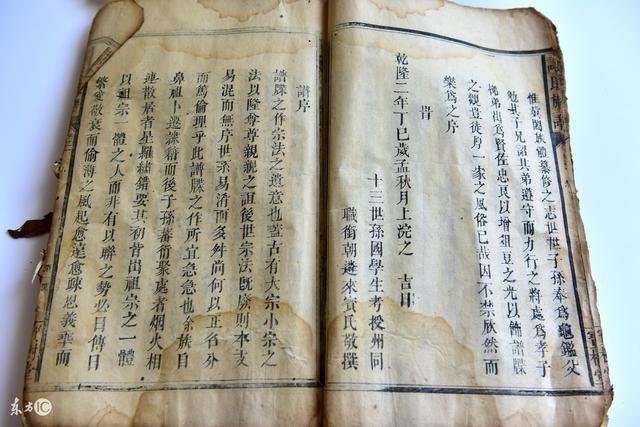 惟我闔族體纂修之志世世子孫奉為龜鑑父
勉其子兄詔其弟遵守而力行之將處爲孝子
悌弟出爲賢佐忠良以增俎豆之光以飾譜牒
之觀豈徒序一家之風俗已哉因不禁欣然而
樂爲之序
旹
乾隆二年丁巳歲孟秋月上浣之 吉日
十三世孫國學生考授州同
職銜朝遴來賓氏敬撰
譜序
譜牒之作宗法之遺意也蓋古有大宗小宗之
法以隆尊尊親親之誼後世宗法既廢則本支
易混而無序世系易淆而多舛尚何以正名分
而篤倫理乎此譜牒之作所宜急急也余族自
鼻祖卜遷籍而後子孫蕃衍聚處者烟火相
連散居者星羅繡錯要其初皆出祖宗之一體
以祖宗一體之人而非有以聯之勢必日傳日
繁愛敬衰而偷薄之風起愈遠愈疎恩義乖而
东方IC